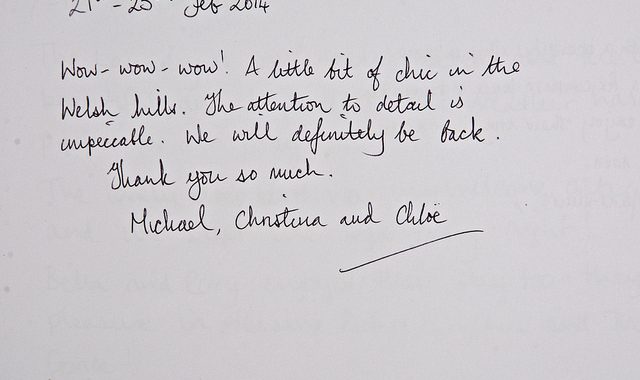 21st - 23rd Feb 2014
Wow - wow - wow! A little bit of chic in the
Welsh hills. The attention to detail is
impeccable. We will definitely be back.
Thank you so much.
Michael, Christina and Chloë